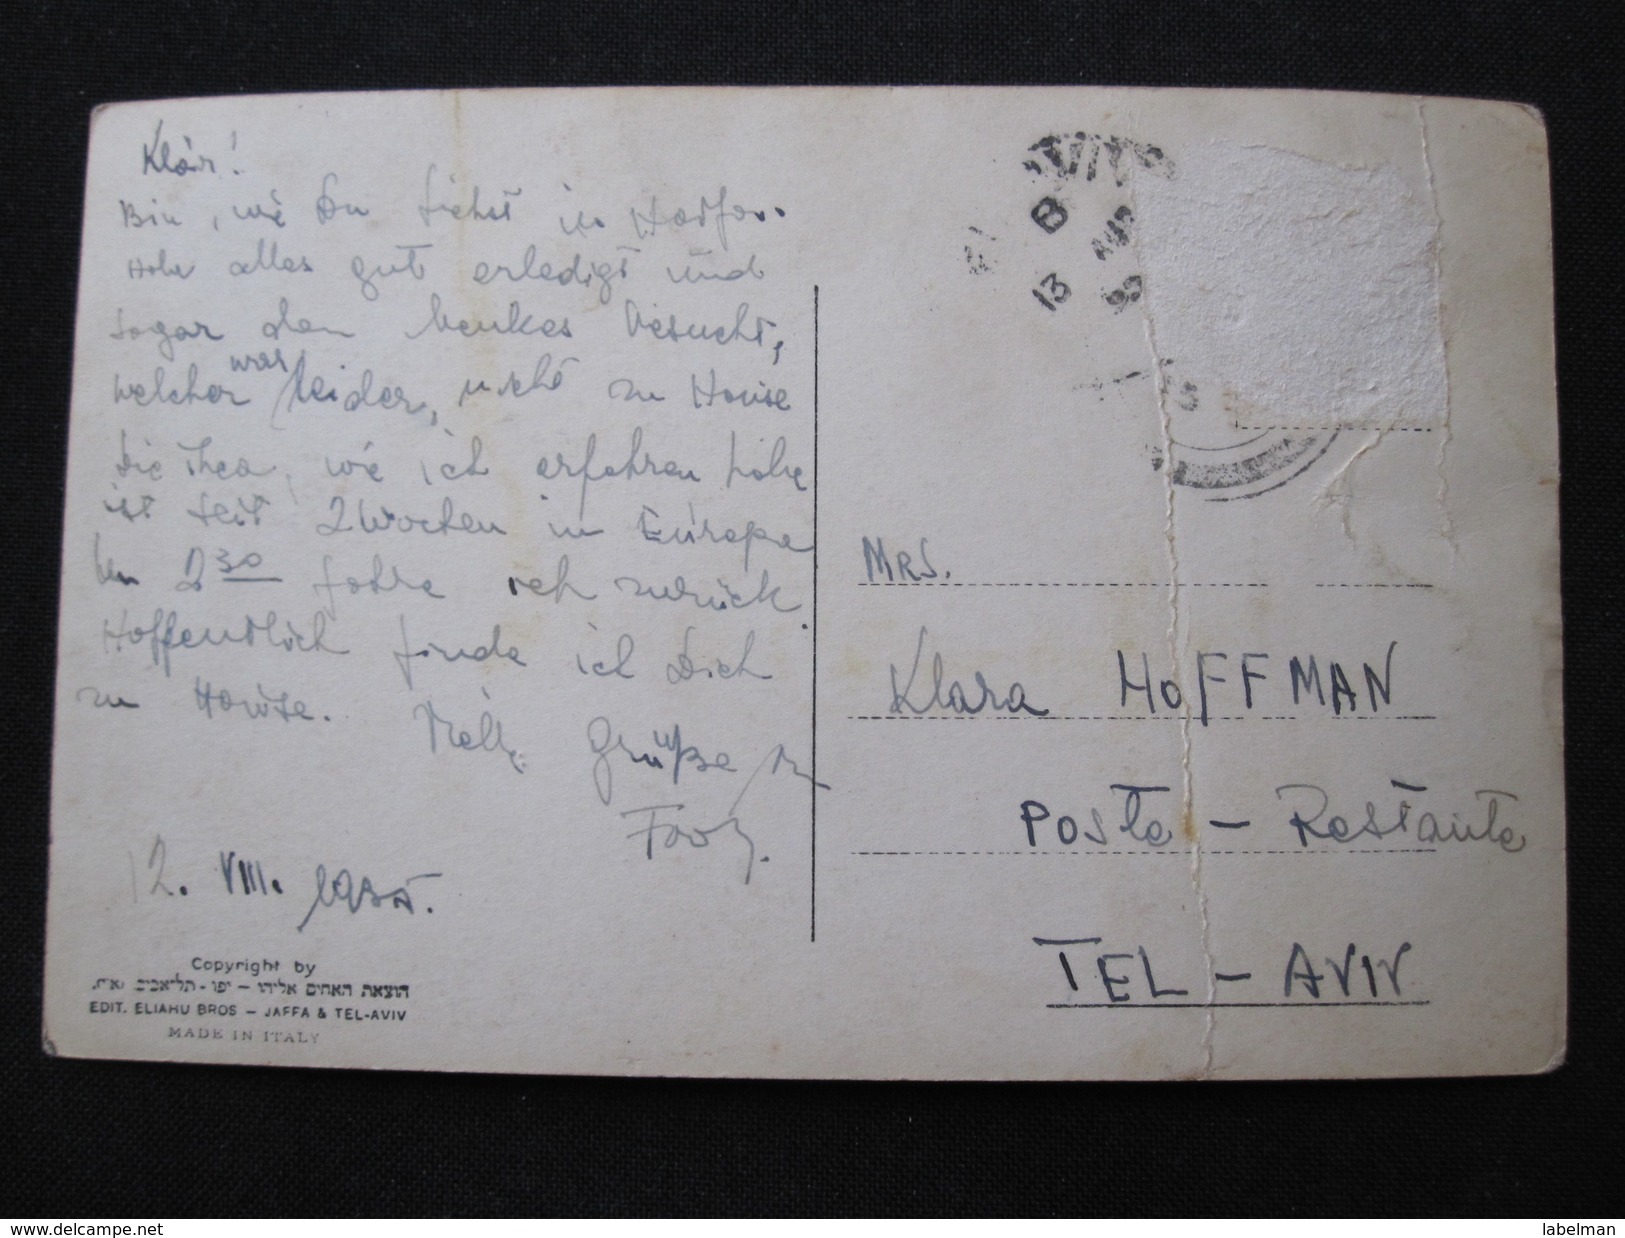 Klár!
Bin, wie Du siehst in
Habe alles gut erledigt und
sogar den besucht,
welcher was leider, nicht zu Hause
Die Thea, wie ich erfahren habe
ist seit 2 Wochen in Europa
Um 2 30 fahre ich zurück.
Hoffentlich finde ich Dich
zu Hause. Viele Grüße
12. VIII. 1955.
Copyright by
הוצאת האחים אליהו – יפו - תל־אביב
EDIT. ELIAHU BROS – JAFFA & TEL-AVIV
MADE IN ITALY
13 AUG
MRS.
Klara HOFFMAN
Poste - Restante
TEL - AVIV
labelman
www.delcampe.net